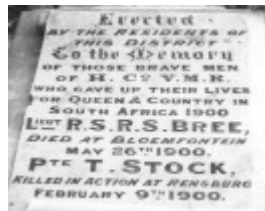 Erected
BY THE RESIDENTS OF
THIS DISTRICT
To the Memory
OF THOSE BRAVE MEN
OF H. Co V.M.R.
WHO GAVE UP THEIR LIVES
FOR QUEEN & COUNTRY IN
SOUTH AFRICA 1900
LIEUT R.S.R.S. BREE,
DIED AT BLOEMFONTEIN
MAY 26TH 1900.
PTE T. STOCK,
KILLED IN ACTION AT RENSBURG
FEBRUARY 9TH 1900.